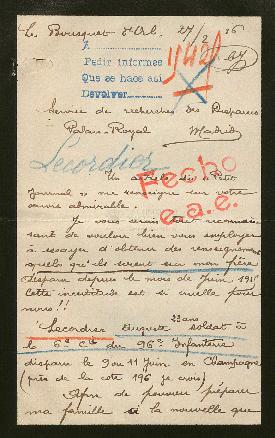 Le Bousquet d'Orb. 27/2 16
A
Pedir informes
Que se hace así
Devolver
Service de recherches des Disparus
Palais-Royal Madrid
Lecordier
Un article du "Petit
Journal" me renseigne sur votre
œuvre admirable.
Fecho
e.a.e.
Je vous serais très reconnais
sant de vouloir bien vous employer
à essayer d'obtenir des renseignements
quels qu'ils soient sur mon frère
disparu depuis le mois de Juin 1915
Cette incertitude est si cruelle pour
nous!!
Lecordier Auguste 23 ans soldat à
la 6e Cie du 96e Infanterie
disparu le 9 ou 11 Juin en Champagne
(près de la cote 196 je crois)
Afin de pouvoir préparer
ma famille à la nouvelle que